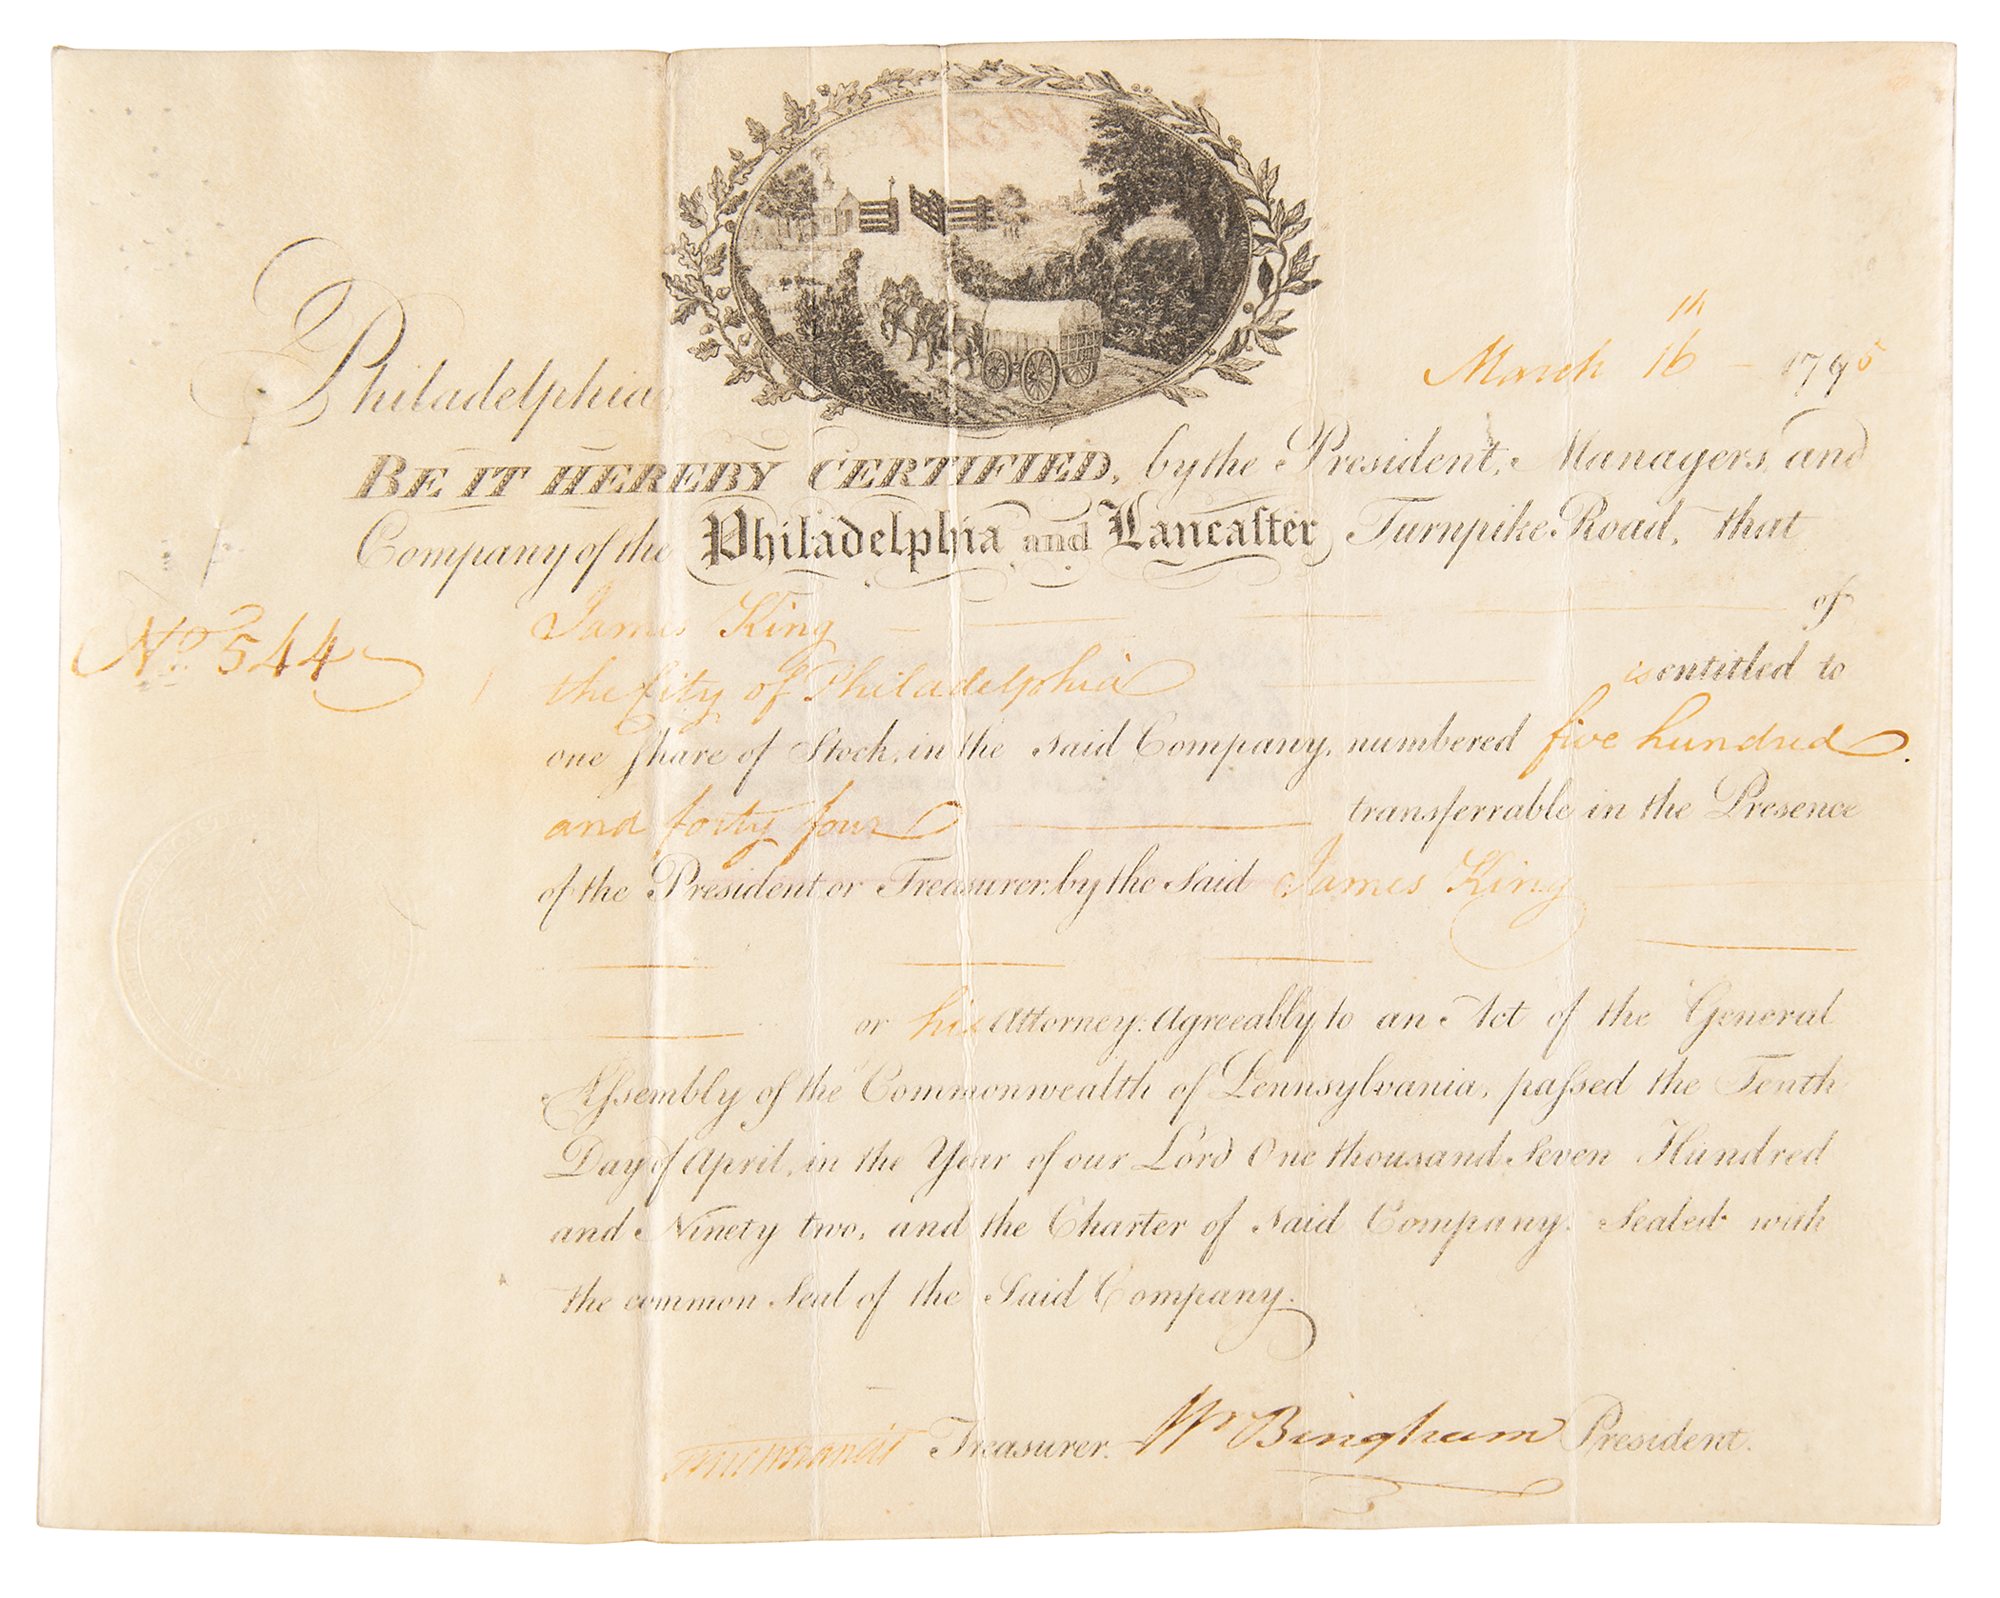 Philadelphia March 16th 1795
BE IT HEREBY CERTIFIED, by the President, Managers, and
Company of the Philadelphia and Lancaſter Turnpike Road, that
No. 544
James King of
the City of Philadelphia is entitled to
one Share of Stock, in the said Company, numbered five hundred
and forty four transferrable in the Presence
of the President or Treasurer, by the said James King
or his Attorney: Agreeably to an Act of the General
Aſsembly of the Commonwealth of Pennsylvania, paſsed the Tenth
Day of April, in the Year of our Lord One thousand Seven Hundred
and Ninety two, and the Charter of said Company. Sealed with
the common Seal of the Said Company.
Treasurer. Wm Bingham President.